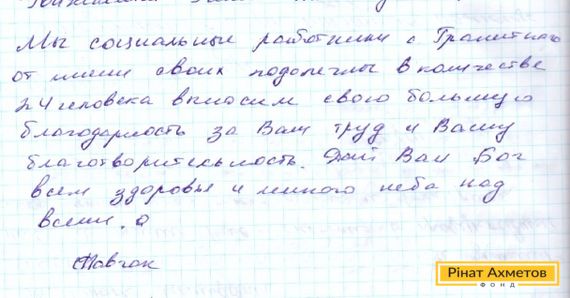 Мы социальные работники с Гранитного
от имени своих подопечны в количестве
24 человека вносим свою большую
благодарность за Ваш труд и Вашу
благотворительность. Дай Вам Бог
всем здоровья и мирного неба над
всеми.
Рінат Ахметов
ФОНД